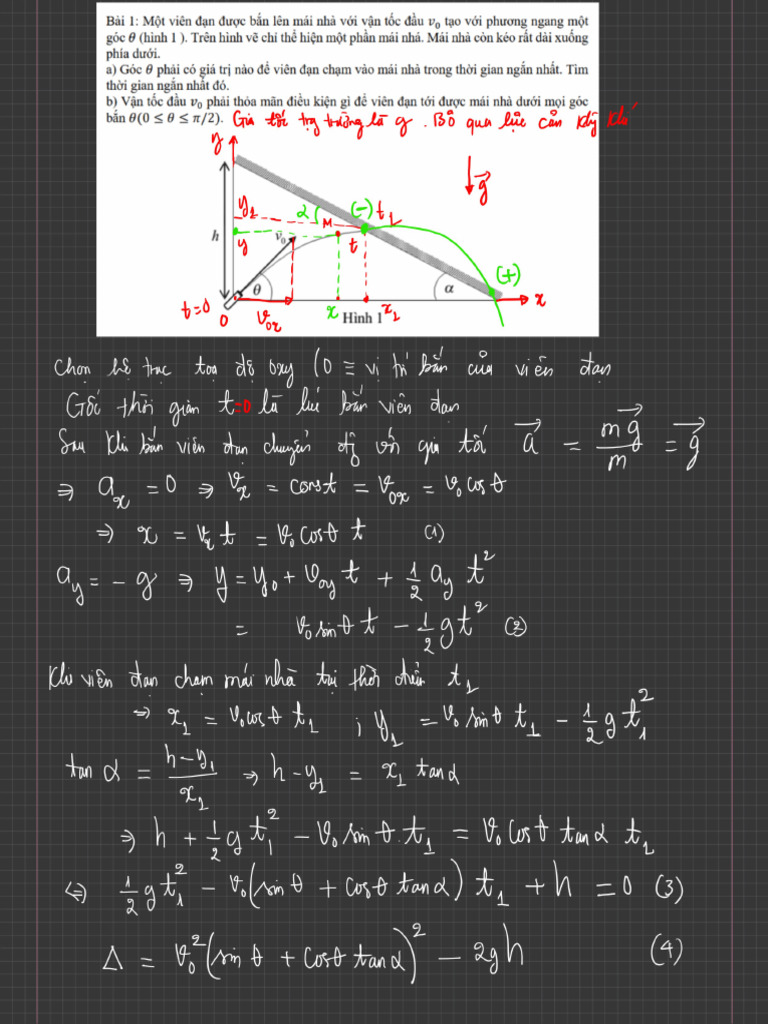 Bài 1: Một viên đạn được bắn lên mái nhà với vận tốc đầu v₀ tạo với phương ngang một
góc θ (hình 1 ). Trên hình vẽ chỉ thể hiện một phần mái nhà. Mái nhà còn kéo rất dài xuống
phía dưới.
a) Góc θ phải có giá trị nào để viên đạn chạm vào mái nhà trong thời gian ngắn nhất. Tìm
thời gian ngắn nhất đó.
b) Vận tốc đầu v₀ phải thỏa mãn điều kiện gì để viên đạn tới được mái nhà dưới mọi góc
bắn θ(0 ≤ θ ≤ π/2). Gia tốc trọng trường là g . Bỏ qua lực cản không khí
y
y₁ α M (-) t₁ g⃗
h y v⃗₀ t
(+)
θ α x
t=0 0 v₀ₓ x x₁
Hình 1
Chọn hệ trục toạ độ oxy (0 ≡ vị trí bắn của viên đạn
Gốc thời gian t=0 là lúc bắn viên đạn
Sau khi bắn viên đạn chuyển độ với gia tốc a⃗ = mg⃗/m = g⃗
⇒ aₓ = 0 ⇒ vₓ = const = v₀ₓ = v₀ cosθ
⇒ x = vₓ t = v₀ cosθ t (1)
a_y = - g ⇒ y = y₀ + v₀y t + 1/2 a_y t²
= v₀ sinθ t - 1/2 g t² (2)
Khi viên đạn chạm mái nhà tại thời điểm t₁
⇒ x₁ = v₀ cosθ t₁ ; y₁ = v₀ sinθ t₁ - 1/2 g t₁²
tan α = (h-y₁)/x₁ ⇒ h-y₁ = x₁ tanα
⇒ h + 1/2 g t₁² - v₀ sinθ.t₁ = v₀ cosθ tanα t₁
⇔ 1/2 g t₁² - v₀(sinθ + cosθ tanα) t₁ + h = 0 (3)
Δ = v₀²(sinθ + cosθ tanα)² - 2gh (4)